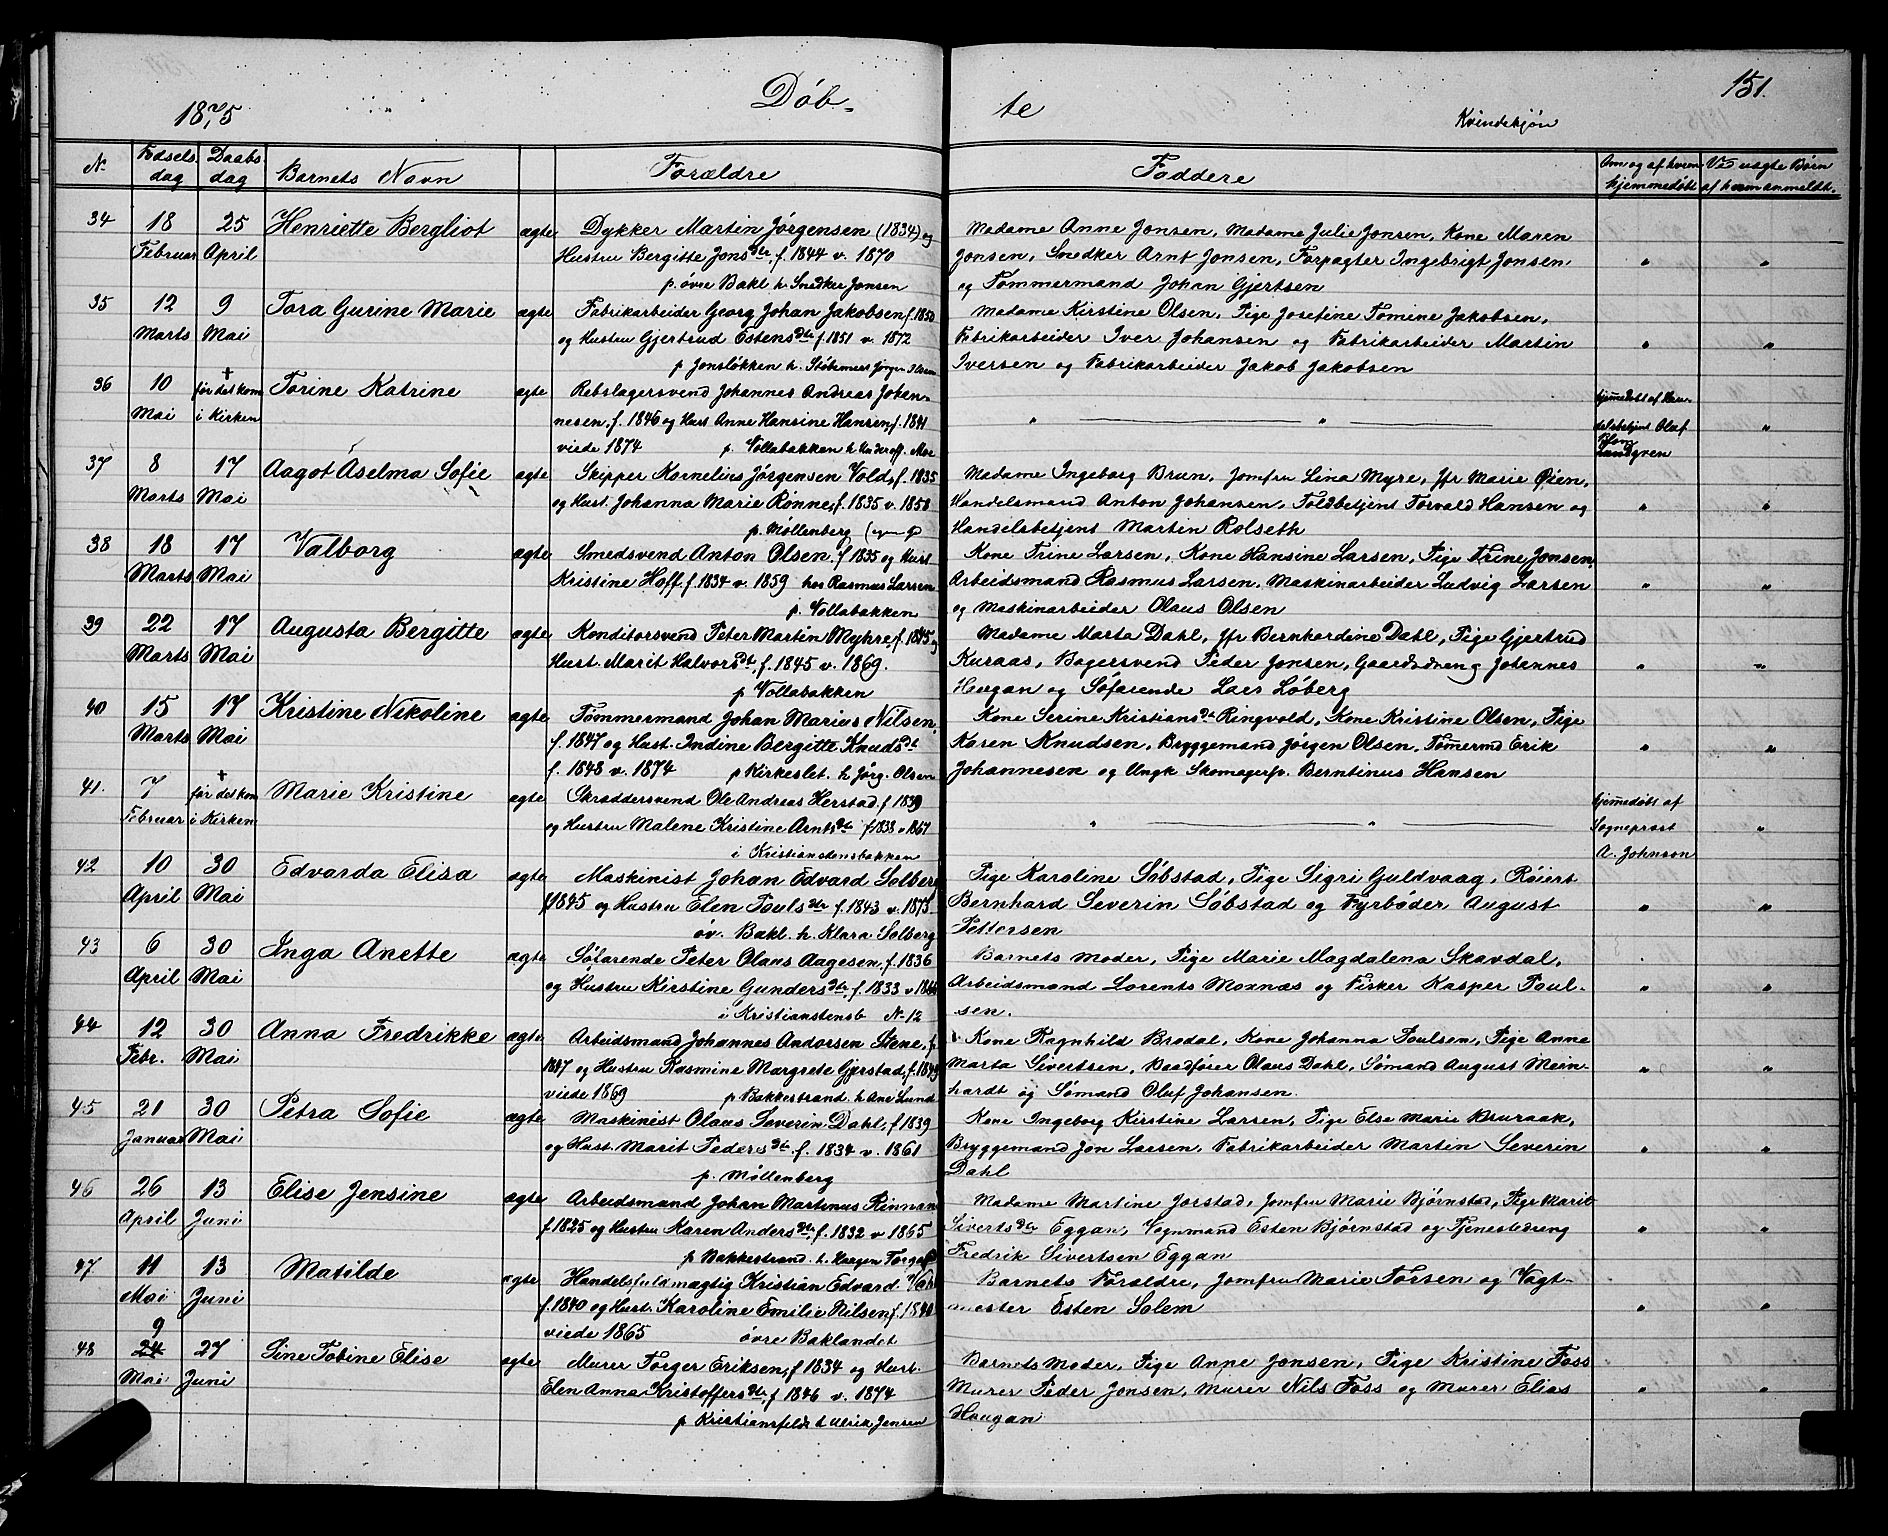 1875 Döb- te Kvindekjön 151.
N. Fødsels dag Daabs dag Barnets Navn Forældre Faddere Om og af hvem hjemmedöbt Ved uægte Børn af hvem anmeldt.
34 18 25 Henriette Bergliot ægte Dykker Martin Jörgensen (1834) og Madame Anne Jonsen, Madame Julie Jonsen, Kone Maren
Februar April Hustru Bergitte Jonsdtr, f. 1844 v. 1870 Jonsen, Snedker Arnt Jonsen, Forpagter Ingebrigt Jonsen " "
p. övre Bakl h. Snedker Jonsen og Tømmermand Johan Gjertsen
35 12 9 Tora Gurine Marie ægte Fabrikarbeider Georg Johan Jakobsen f. 1850 Madame Kirstine Olsen, Pige Josefine Tomine Jakobsen,
Marts Mai og Hustru Gjertrud Estensdtr f. 1851 v. 1872 Fabrikarbeider Iver Johansen og Fabrikarbeider Martin " "
p Jonsløkken h. Iversen og Fabrikarbeider Jakob Jakobsen
36 10 + før det kom Torine Katrine ægte Rebslagersvend Johannes Andreas Johan- hjemmedöbt af Han-
Mai i Kirken nesen, f. 1846 og Hust Anne Hansine Hansen, f. 1841 " " delsbetjent Olaf "
viede 1874 p. Vollabakken h Underoff. Moe Landgren
37 8 17 Aagot Aselma Sofie ægte Skipper Kornelius Jörgensen Vold, f. 1835 Madame Ingeborg Brun, Jomfru Lina Myre, Jfr Marie Øien,
Marts Mai og Hust. Johanna Marie Rönne, f. 1835 v. 1858 Handelsmand Anton Johansen, Toldbetjent Torvald Hansen og " "
p. Möllenberg Handelsbetjent Martin Rolseth
38 18 17 Valborg ægte Smedsvend Anton Olsen, f 1835 og Hust Kone Trine Larsen, Kone Hansine Larsen, Pige Trine Jonsen
Marts Mai Kristine Hoff, f. 1834 v. 1859 hos Rasmus Larsen Arbeidsmand Rasmus Larsen, Maskinarbeider Ludvig Larsen " "
p. Vollabakken og Maskinarbeider Olaus Olsen
39 22 17 Augusta Bergitte ægte Konditorsvend Peter Martin Myhre, f. 1845 og Madame Marta Dahl, Jfr Bernhardine Dahl, Pige Gjertrud
Marts Mai Hust. Marit Halvorsdt, f. 1845 v. 1869. Kuraas, Bagersvend Peder Jonsen, Gaardsdreng Johannes " "
p Vollabakken Haugan og Söfarende Lars Löberg
40 15 17 Kristine Nikoline ægte Tömmermand Johan Marius Nilsen, Kone Serine Kristiansdt Ringvold, Kone Kristine Olsen, Pige
Marts Mai f. 1847 og Hust. Indine Bergitte Knudsdt Karen Knudsen, Bryggemand Jörgen Olsen, Tömermd Erik " "
f. 1848 v. 1874 p Kirkeslet. h Jörg. Olsen Johannesen og Ungk Skomagersv. Berntinus Hansen
41. 7 + før det kom Marie Kristine ægte Skræddersvend Ole Andreas Herstad f 1839 hjemmedöbt af
Februar i Kirken og Hustru Malene Kristine Arntsdtr f 1838 v 1867 " " Sogneprest "
i Kristianstensbakken A. Johnson
42 10 30 Edvarda Elisa ægte Maskinist Johan Edvard Solberg Pige Karoline Söbstad, Pige Sigri Guldvaag, Röiert
April Mai f 1845 og Hustru Elen Poulsdtr f. 1843 v. 1873 Bernhard Severin Söbstad og Fyrböder August " "
öv. Bakl. h. Klara Solberg Pettersen
43 6 30 Inga Anette ægte Söfarende Peter Olaus Aagesen, f. 1836 Barnets Moder, Pige Marie Magdalena Skavdal,
April Mai og Hustru Kirstine Gundersdtr, f. 1833 v 1860 Arbeidsmand Lorents Moxnæs og Fisker Kasper Poul- " "
i Kristianstensb N. 12 sen.
44 12 30 Anna Fredrikke ægte Arbeidsmand Johannes Andersen Stene, f. Kone Ragnhild Brodal, Kone Johanna Poulsen, Pige Anne
Febr. Mai 1847 og Hustru Rasmine Margrete Gjerstad, f. 1849 Marta Sivertsen, Baadförer Olaus Dahl, Sömand August Mein- " "
viede 1869 p Bakkestrand h Ane Lund hardt og Sömand Oluf Johansen.
45 21 30 Petra Sofie ægte Maskinist Olaus Severin Dahl, f 1839 Kone Ingeborg Kirstine Larsen, Pige Else Marie Bruraak,
Januar Mai og Hust. Marit Pedersdtr f. 1834 v. 1861 Bryggemand Jon Larsen, Fabrikarbeider Martin Severin " "
p. Möllenberg Dahl
46 26 13 Elise Jensine ægte Arbeidsmand Johan Martinus Rinnan Madame Martine Jorstad, Jomfru Marie Bjørnstad, Pige Marit
April Juni f 1825 og Hustru Karen Andersdtr, f. 1832 v 1865 Sivertsdtr Eggan, Vognmand Esten Bjørnstad og Tjenestedreng " "
p Bakkestrand h. Haagen Fredrik Sivertsen Eggan
47 11 13 Matilde ægte Handelsfuldmægtig Kristian Edvard Barnets Forældre, Jomfru Marie Torsen og Vagt-
Mai Juni f. 1840 og Hust. Karoline Emilie Nilsen, f. 1840 mester Esten Solem " "
viede 1865 övre Baklandet
9
48 24 27 Sine Tobine Elise ægte Murer Torger Eriksen, f 1834 og Hust. Barnets Moder, Pige Anne Jonsen, Pige Kristine Foss
Mai Juni Elen Anna Kristoffersdtr, f 1846 v. 1874 Murer Peder Jonsen, Murer Nils Foss og Murer Elias " "
p Kristiansfeldt h Ulrik Jensen Haugan